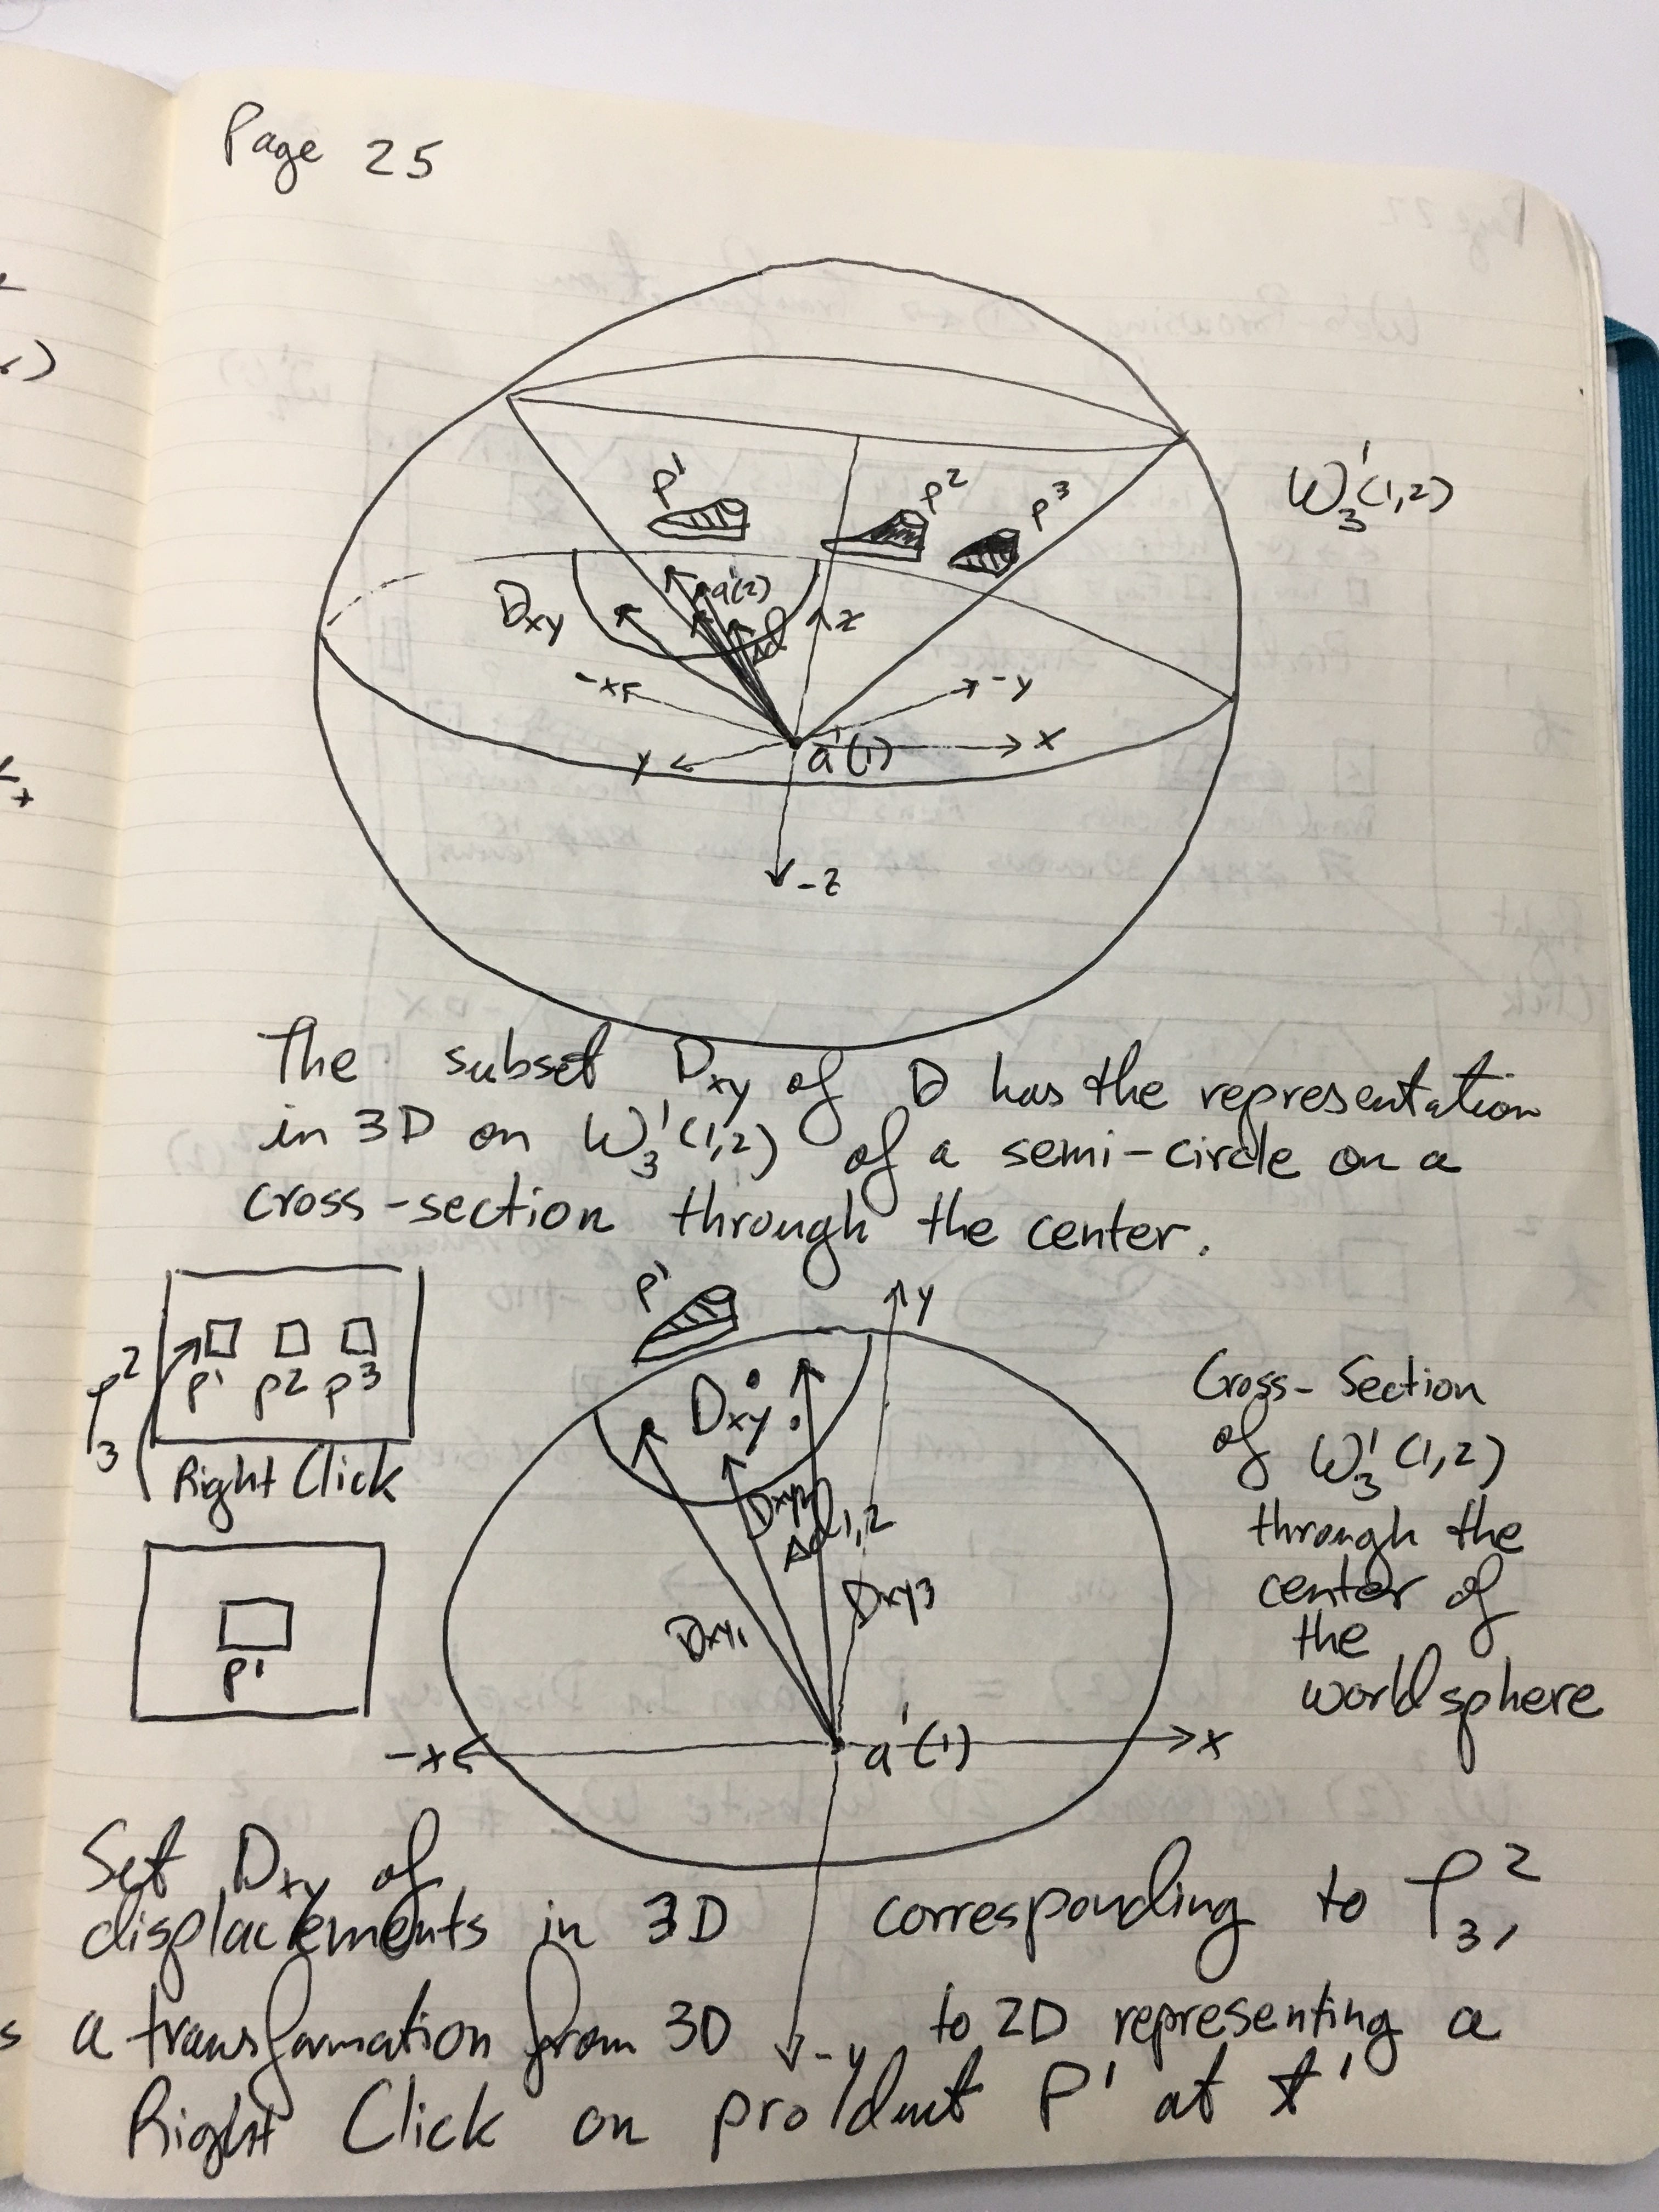 Page 25
W₃¹(1,2)
p¹
p²
p³
a¹(2)
Dxy
Δd
z
-x
-y
y
x
a¹(1)
-z
The subset Dxy of D has the representation
in 3D on W₃¹(1,2) of a semi-circle on a
cross-section through the center.
p¹
y
p¹ p2 p3
Right Click
Dxy
Cross-Section
of W₃¹(1,2)
through the
center of
the
world sphere
Dxy2
Δd1,2
Dxy1
Dxy3
p¹
-x
a¹(1)
x
Set Dxy of
displacements in 3D corresponding to T₃²,
a transformation from 3D to 2D representing a
-y
Right Click on product P¹ at t¹